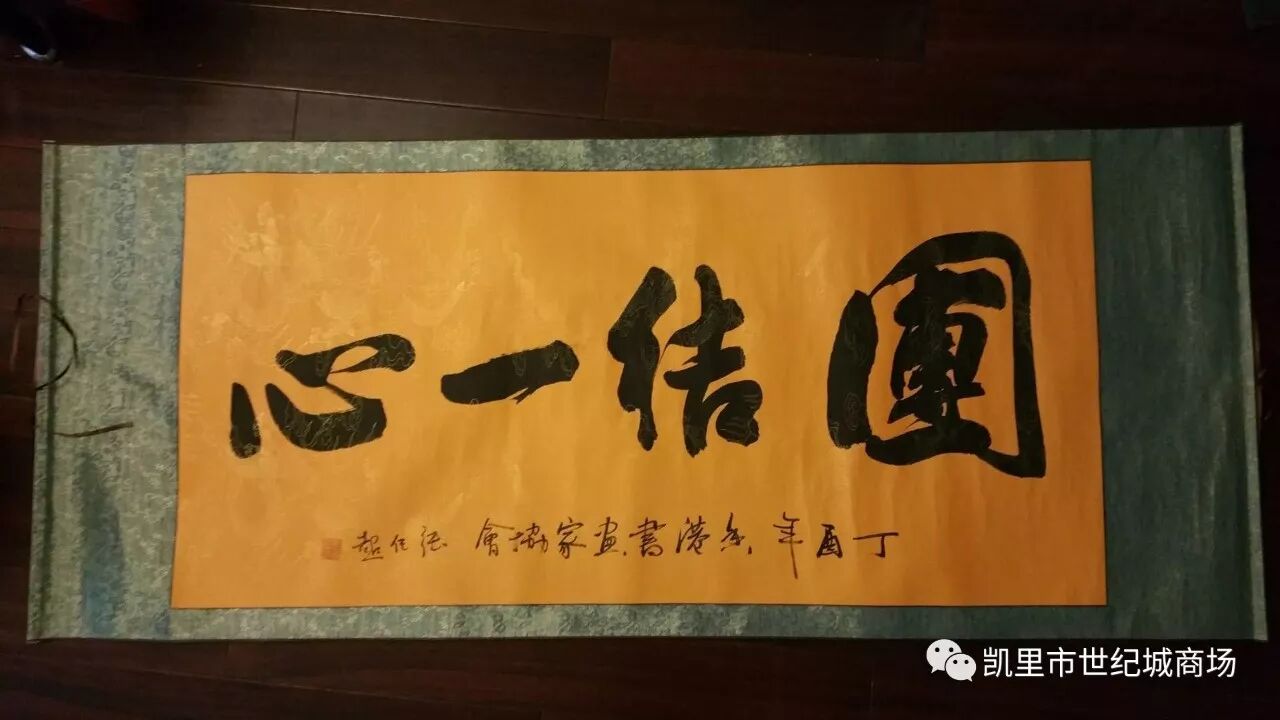 團結一心
丁酉年 香港書畫家協會 張任超
凯里市世纪城商场